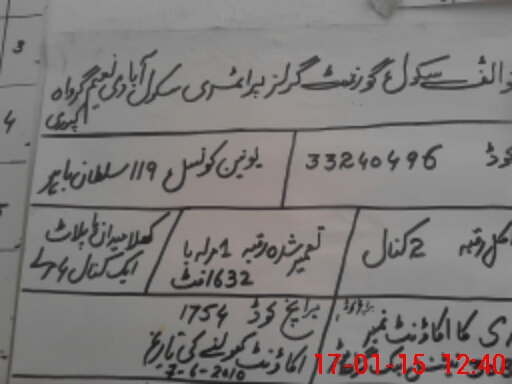 3
4
سکول گورنمنٹ گرلز پرائمری سکول آبادی نعیم گرواہ
کوڈ 33240496
یونین کونسل 119 سلطان باہو
کل رقبہ 2 کنال
تعمیر شدہ رقبہ 1 مرلہ یا
1632 فٹ
کھلا میدان / پلاٹ
ایک کنال
برانچ کوڈ 1754
اکاؤنٹ کھولنے کی تاریخ
7-6-2010
کا اکاؤنٹ نمبر
17-01-15 12:40